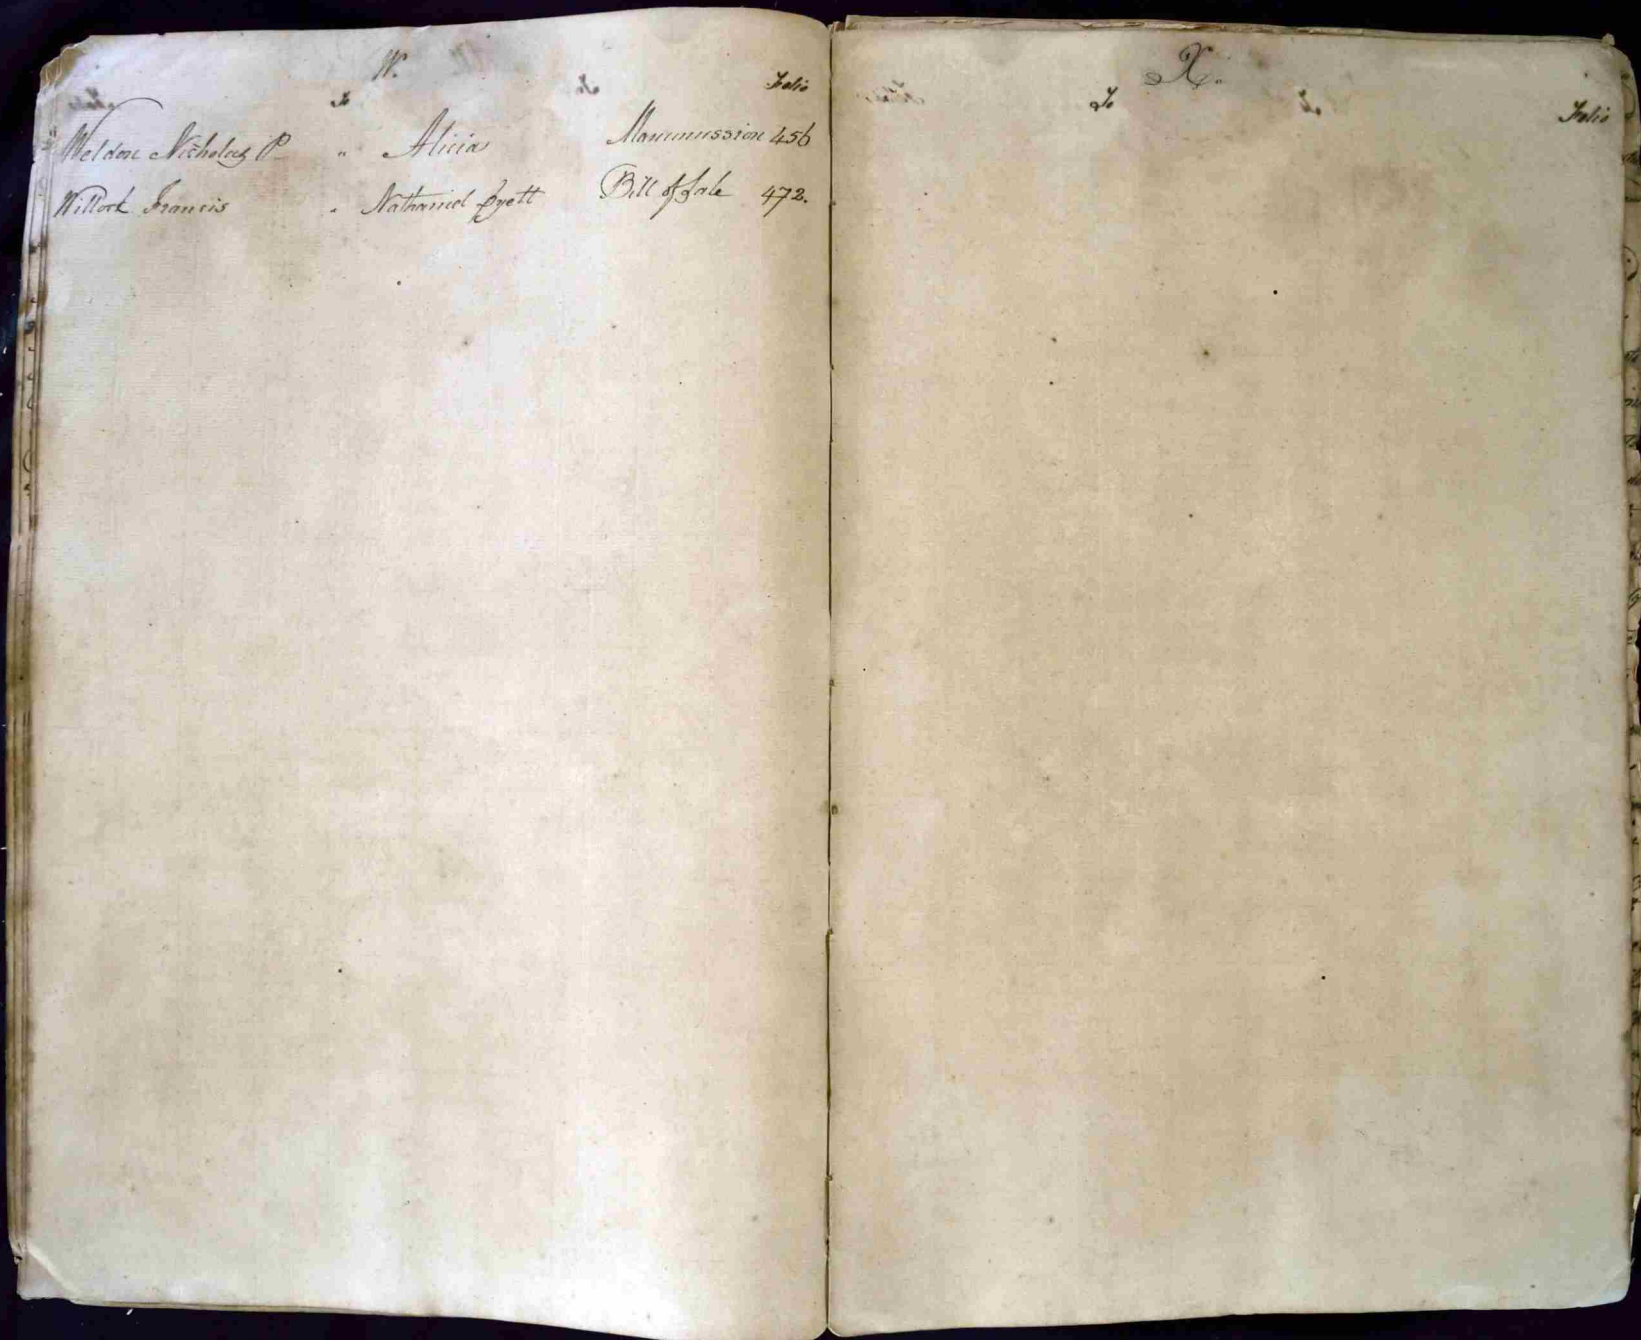 W.
To Folio
Weldon Nicholas P " Alicia Manumission 456
Willock Francis " Nathaniel Pyett Bill of Sale 472.
X.
To Folio